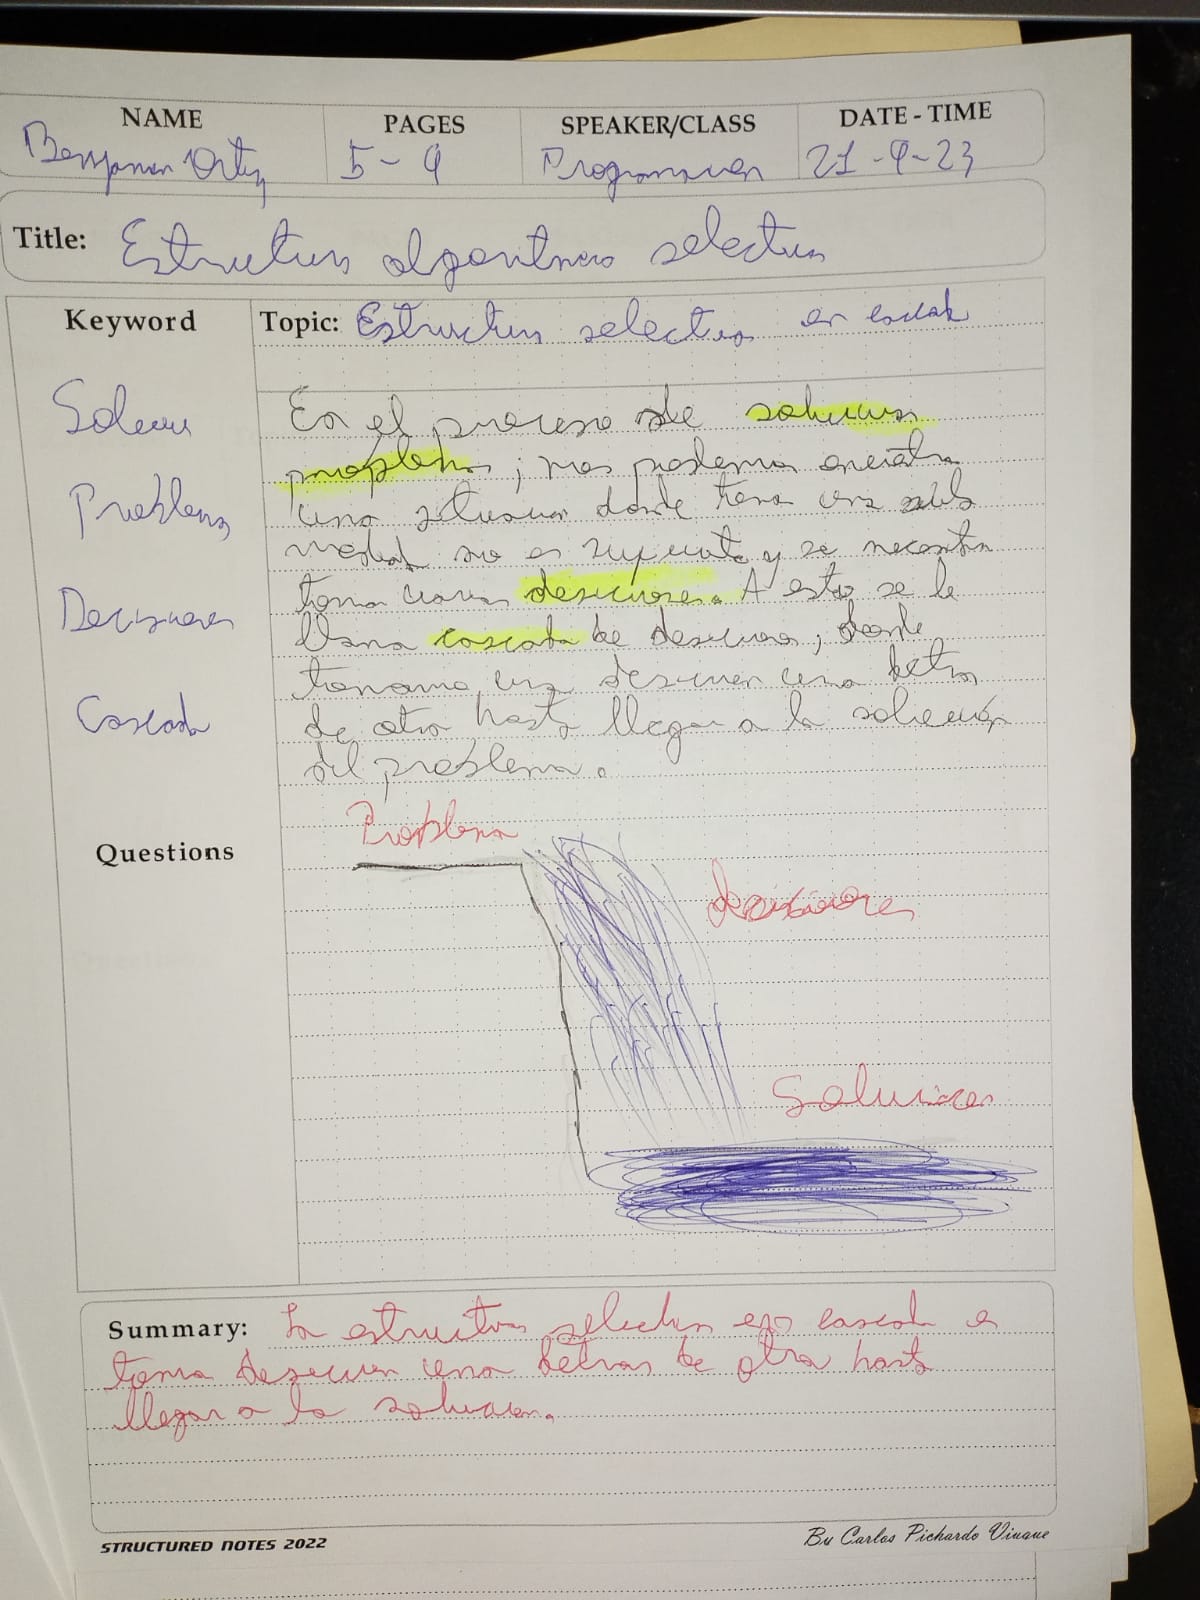 NAME
PAGES
SPEAKER/CLASS
DATE - TIME
Benjamin Ortiz
5 - 9
Programacion
21 - 9 - 23
Title: Estructuras algoritmicas selectivas
Keyword
Topic: Estructuras selectivas en cascada
Solucion
Problema
Decisiones
Cascada
En el proceso de solucionar
problemas, nos podemos encontrar
una situacion donde tomar una sola
no es suficiente y se necesita
tomar varias desiciones. A esto se le
llama cascada de desiciones, donde
tomamos una desicion una detras
de otra hasta llegar a la solución
del problema.
Problema
Questions
decisiones
Soluciones
Summary: La estructura selectiva en cascada es
tomar desicion una detras de otra hasta
llegar a la solucion.
STRUCTURED NOTES 2022
By Carlos Pichardo Viuque